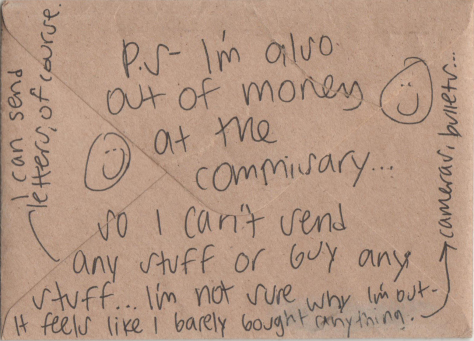 P.S- I'm also
out of money
at the
commisary...
so I can't send
any stuff or buy any
stuff... I'm not sure why I'm out-
It feels like I barely bought anything.
cameras, bullets...
I can send
letters, of course.